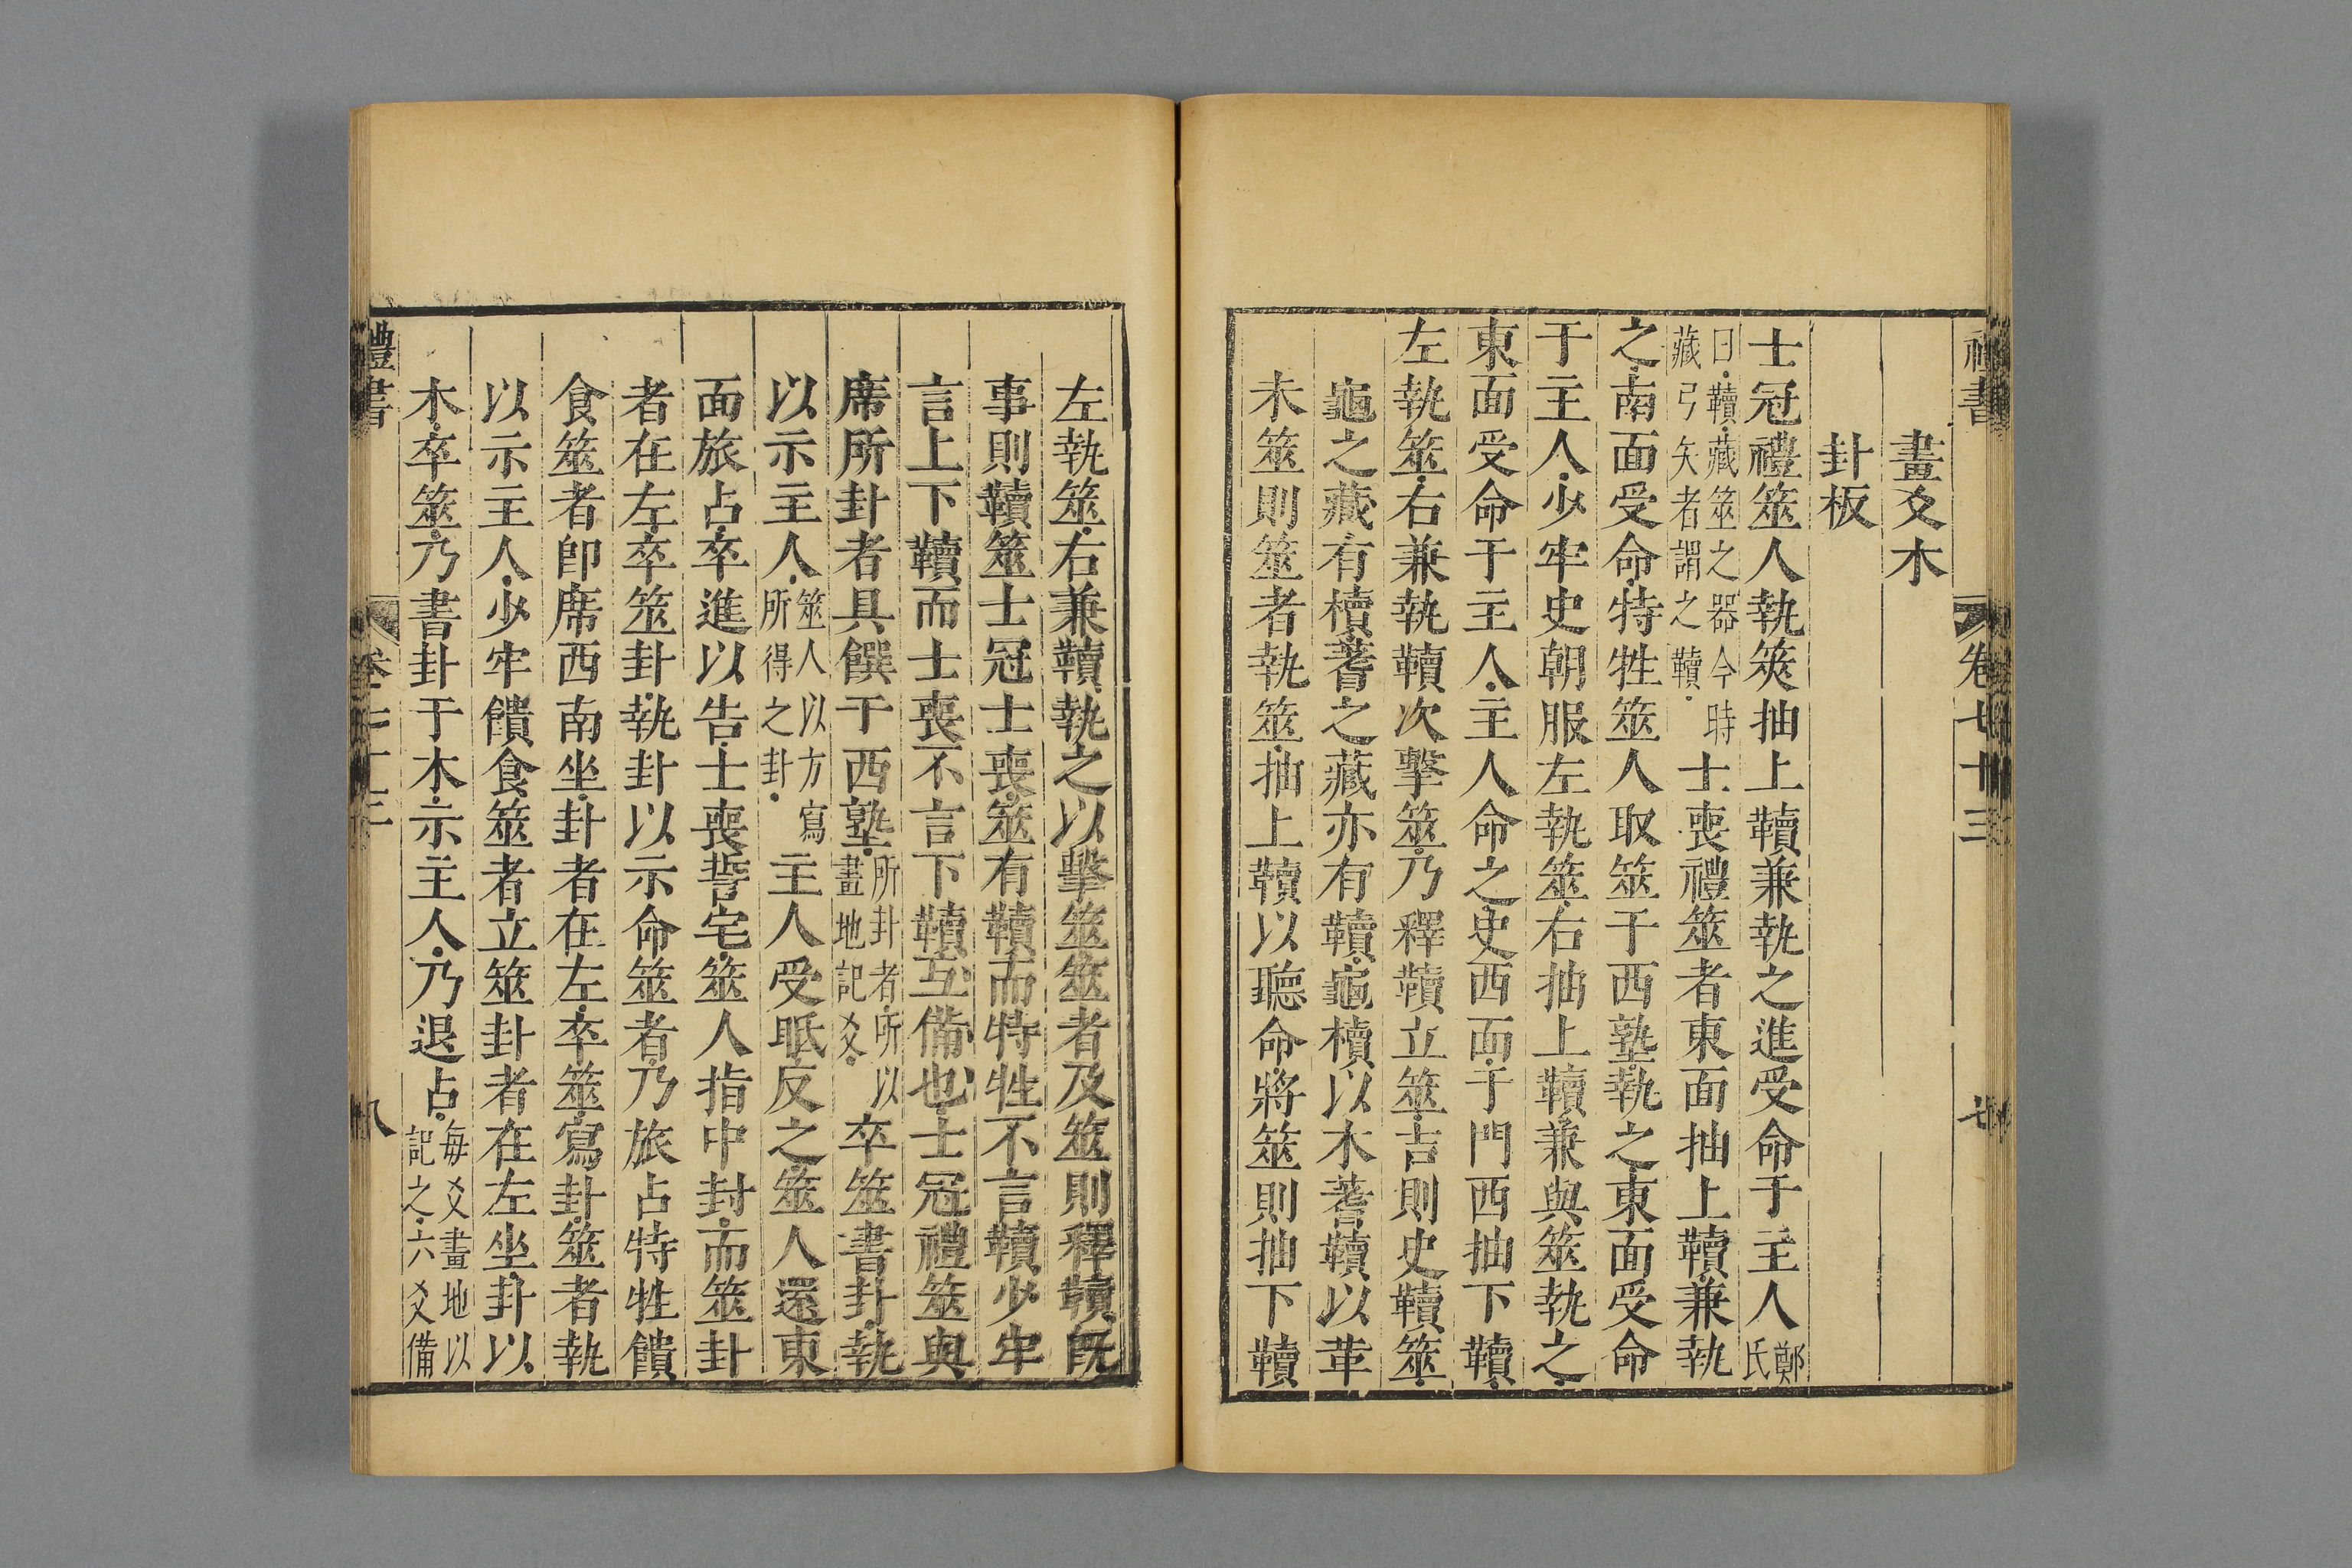 畫爻木
卦板
士冠禮筮人執筴抽上韇兼執之進受命于主人鄭氏
曰韇藏筮之器今時藏弓矢者謂之韇士喪禮筮者東面抽上韇兼執
之南面受命特牲筮人取筮于西塾執之東面受命
于主人少牢史朝服左執筮右抽上韇兼與筮執之
東面受命于主人主人命之史西面于門西抽下韇
左執筮右兼執韇次擊筮乃釋韇立筮吉則史韇筮
龜之藏有櫝蓍之藏亦有韇龜櫝以木蓍韇以革
未筮則筮者執筮抽上韇以聽命將筮則抽下韇
左執筮右兼韇執之以擊筮筮者及筮則釋韇旣
事則韇筮士冠士喪筮有韇而特牲不言韇少牢
言上下韇而士喪不言下韇互備也士冠禮筮與
席所卦者具饌于西塾所卦者所以畫地記爻卒筮書卦執
以示主人筮人以方寫所得之卦主人受眂反之筮人還東
面旅占卒進以告士喪誓宅筮人指中封而筮卦
者在左卒筮卦執卦以示命筮者乃旅占特牲饋
食筮者卽席西南坐卦者在左卒筮寫卦筮者執
以示主人少牢饋食筮者立筮卦者在左坐卦以
木卒筮乃書卦于木示主人乃退占每爻畫地以記之六爻備
禮書